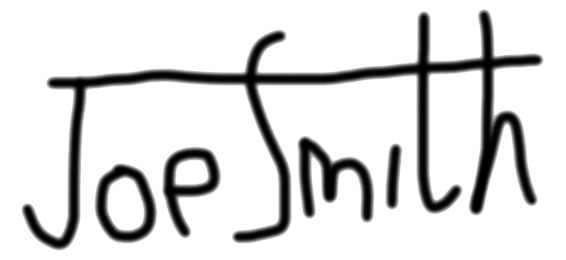 Joe Smith